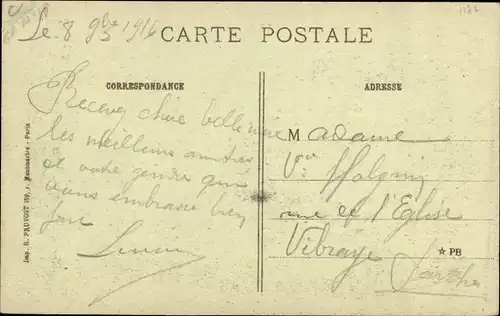 Le 8 9bre 1916
CARTE POSTALE
CORRESPONDANCE
ADRESSE
Recevez chère belle mère
les meilleurs amitiés
de votre gendre qui
vous embrasse bien
fort
Lucien
Madame
Vve
rue de l'Eglise
Vibraye
Sarthe
PB
Imp. E. PRUVOST 159, r. Montmartre - Paris
1122